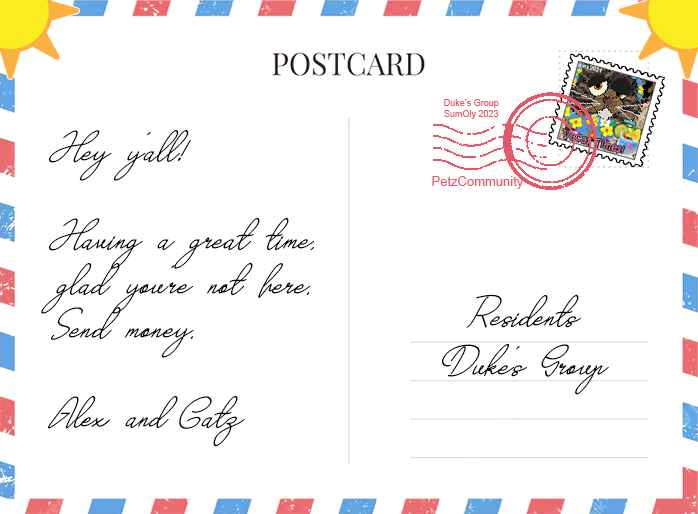 POSTCARD
Duke's Group
SumOly 2023
PetzCommunity
Hey y'all!
Having a great time,
glad you're not here.
Send money.
Alex and Gatz
Residents
Duke's Group